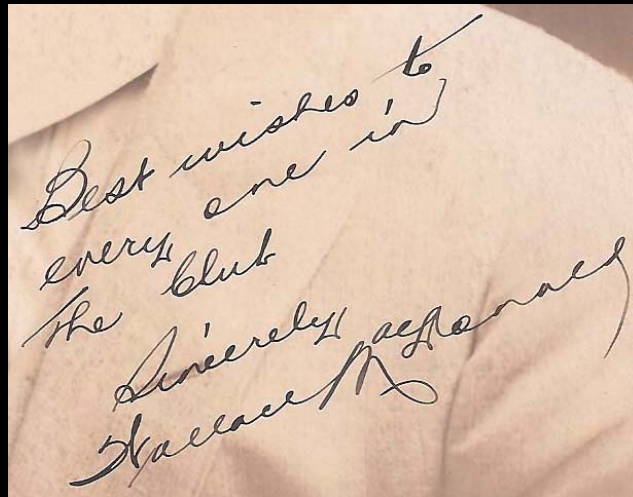 Best wishes to
every one in
the Club
Sincerely
Wallace MacDonald